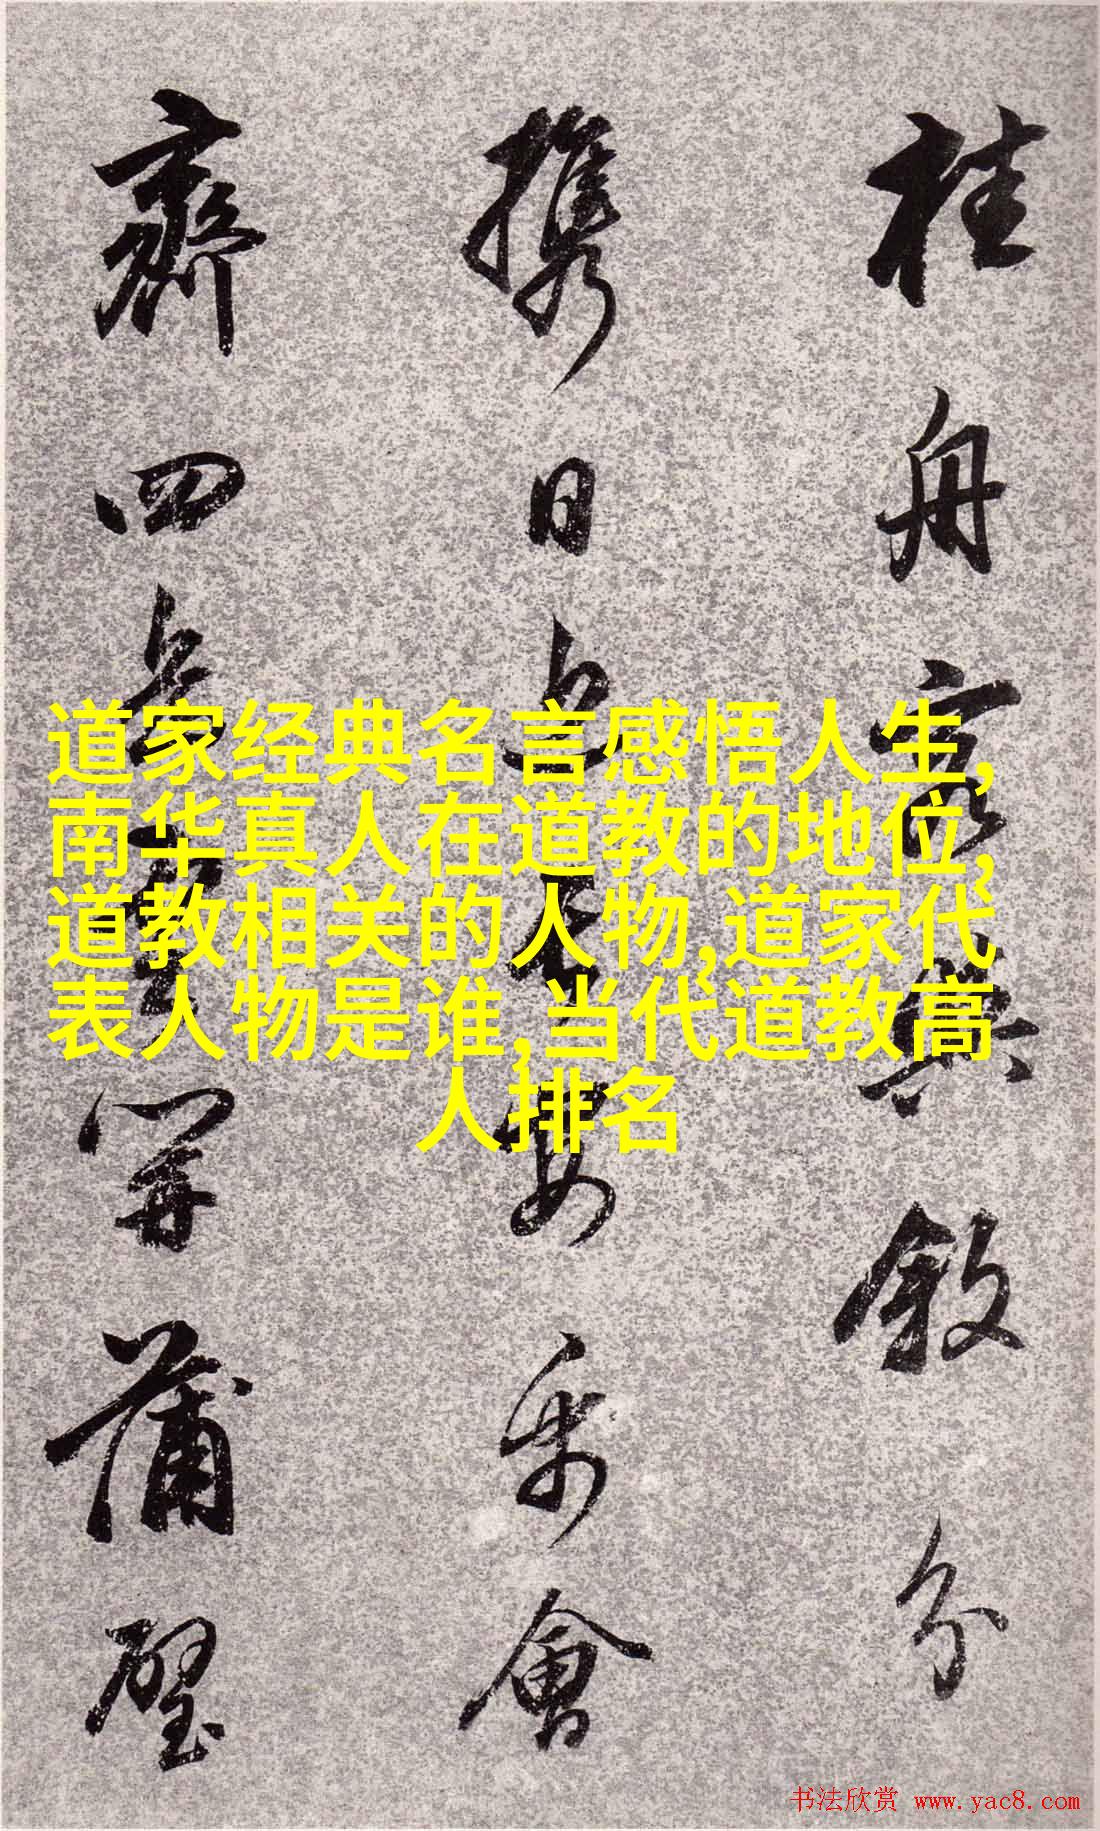 桂舟衣與敘分
携日上安乐會
齊四開蒲璧
道家经典名言感悟人生,
南华真人在道教的地位,
道教相关的人物,道家代
表人物是谁,当代道教高
人排名
书法欣赏 www.yac8.com